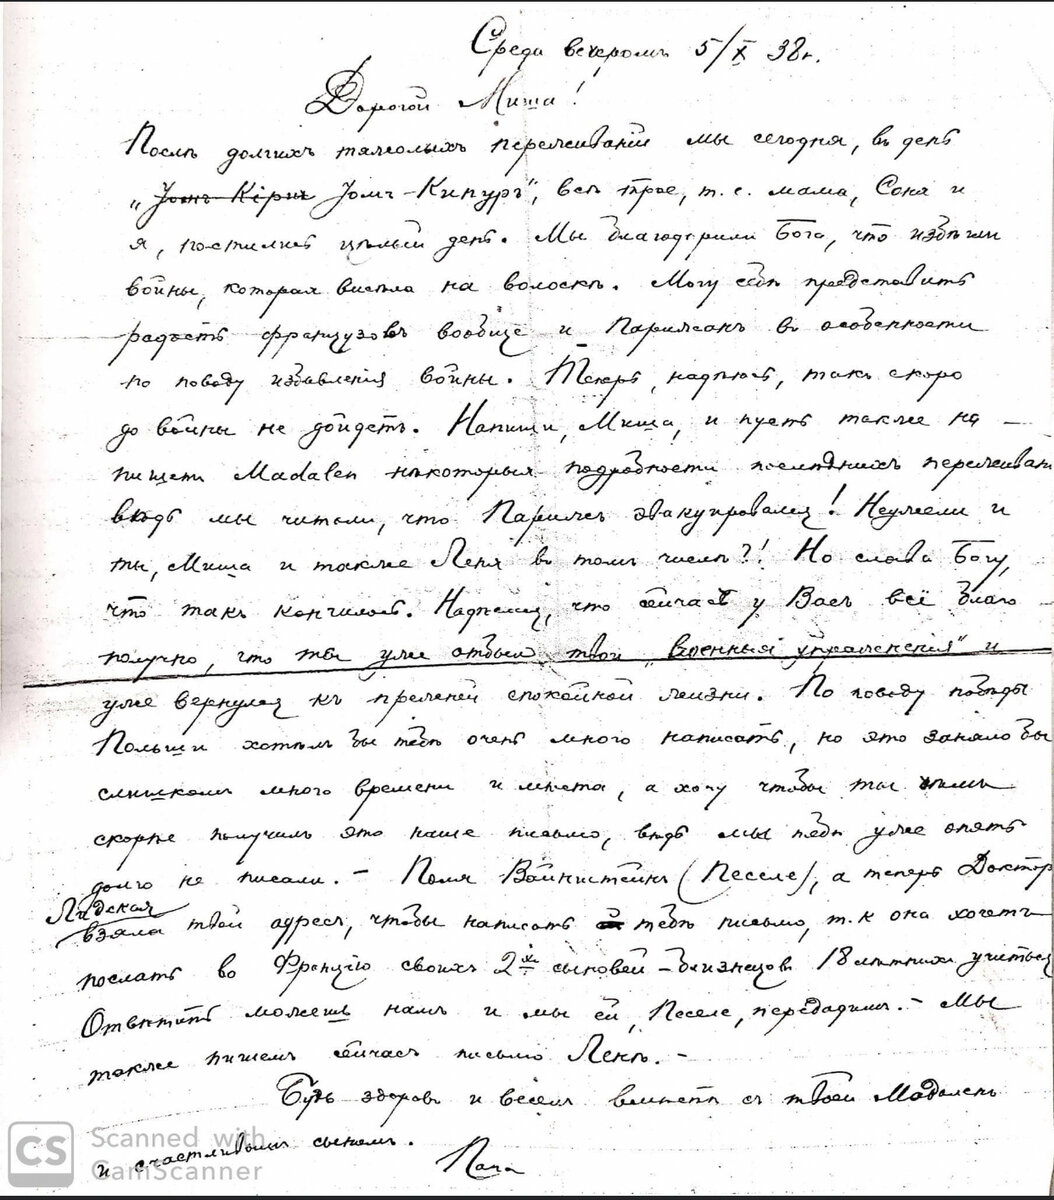 Среда вечеромъ 5/X 38 г.
Дорогой Миша!
Послѣ долгихъ тяжолыхъ переживаній мы сегодня, въ день
„Јомъ-Кірпи Јомъ-Кипуръ", всѣ трое, т. е. мама, Соня и
я, постились цѣлый день. Мы благодарили Бога, что избѣгли
войны, которая висѣла на волоскѣ. Могу себѣ представить
радость французовъ вообще и Парижанъ въ особенности
по поводу избавленія войны. Теперь, надѣюсь, такъ скоро
до войны не дойдетъ. Напиши, Миша, и пусть также на-
пишетъ Madalen нѣкоторыя подробности послѣднихъ переживан
вѣдь мы читали, что Парижъ эвакуировался! Неужели и
ты, Миша и также Леня въ томъ числѣ?! Но слава Богу,
что такъ кончилось. Надѣемся, что сейчасъ у Васъ всё благо-
получно, что ты уже отбылъ твои „военныя упражненія" и
уже вернулся къ прежней спокойной жизни. По поводу побѣды
Польши хотѣлъ бы тебѣ очень много написать, но это заняло бы
слишкомъ много времени и мѣста, а хочу чтобы ты
скорѣе получилъ это наше письмо, вѣдь мы тебѣ уже опять
долго не писали. - Поля Вайнштейнъ (Песеле), а теперь Докторъ
Лидская
взяла твой адресъ, чтобы написать тебѣ письмо, т. к она хочетъ
послать во Францію своихъ 2-хъ сыновей-близнецовъ 18 лѣтнихъ учиться
Отвѣтить можешь намъ и мы ей, Песеле, передадимъ. - Мы
также пишемъ сейчасъ письмо Ленѣ. -
Будь здоровъ и веселъ вмѣстѣ съ твоей Мадаленъ
и счастливымъ сыномъ.
Папа
CS Scanned with
CamScanner